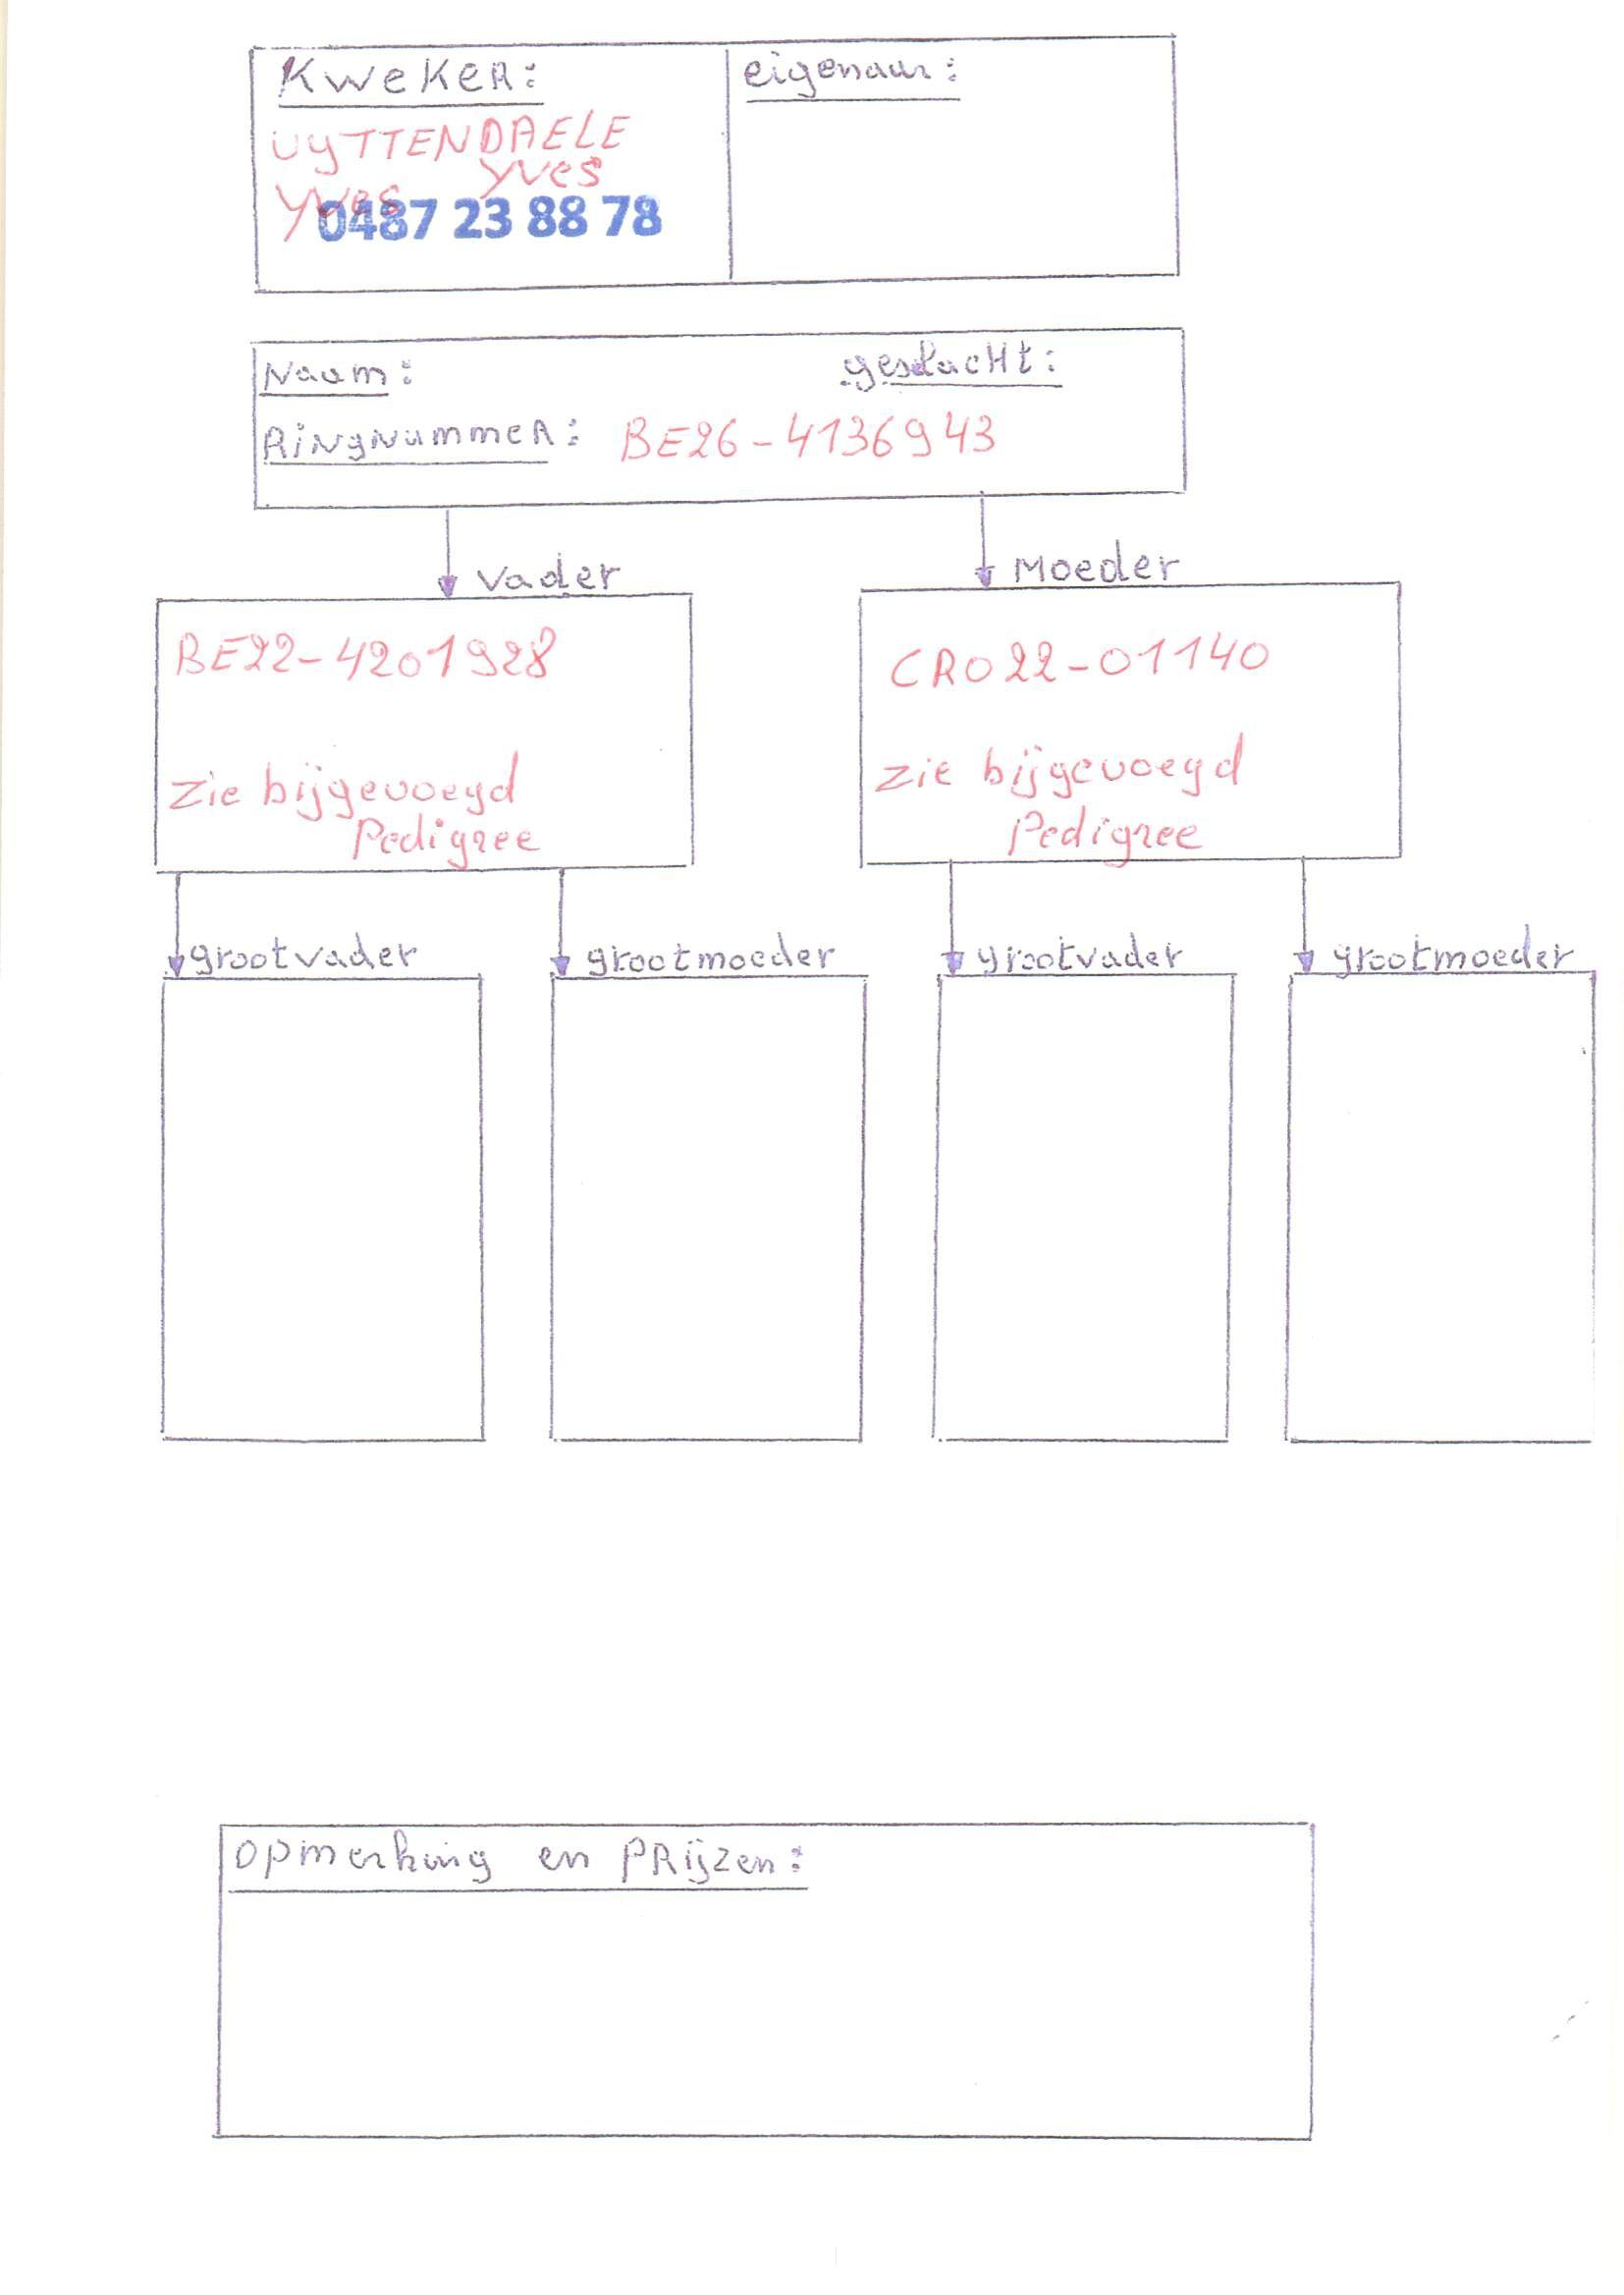 KWEKER:
eigenaar:
UYTTENDAELE
YVES
YVes
0487 23 88 78
Naam:
geslacht:
RiNgNummeR: BE26-4136943
Vader
Moeder
BE22-4201928
CRO22-01140
Zie bijgevoegd
Pedigree
Zie bijgevoegd
Pedigree
grootvader
grootmoeder
grootvader
grootmoeder
opmerking en PRijzen: